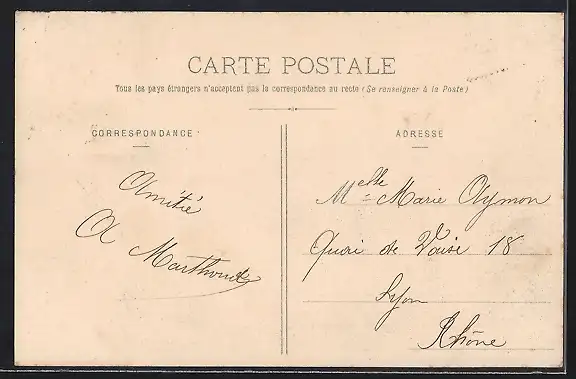 CARTE POSTALE
Tous les pays étrangers n'acceptent pas la correspondance au recto (Se renseigner à la Poste)
CORRESPONDANCE
Amitié
A
ADRESSE
Melle Marie Aymon
Quai de Vaise 18
Lyon
Rhône